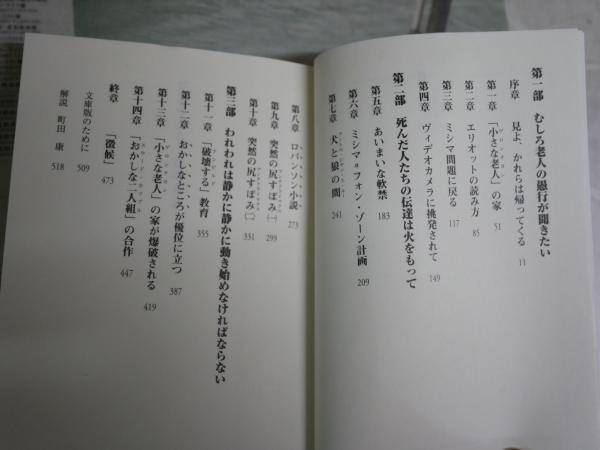 第一部 むしろ老人の愚行が聞きたい
序章 見よ、かれらは帰ってくる 11
第一章 「小さな老人」の家 51
第二章 エリオットの読み方 85
第三章 ミシマ問題に戻る 117
第四章 ヴィデオカメラに挑発されて 149
第二部 死んだ人たちの伝達は火をもって
第五章 あいまいな軟禁 183
第六章 ミシマ=フォン・ゾーン計画 209
第七章 犬と狼の間 241
第八章 ロバンソン小説 273
第九章 突然の尻すぼみ(一) 299
第十章 突然の尻すぼみ(二) 331
第三部 われわれは静かに静かに動き始めなければならない
第十一章 「破壊する」教育 355
第十二章 おかしなところが優位に立つ 387
第十三章 「小さな老人」の家が爆破される 419
第十四章 「おかしな二人組」の合作 447
終章 「徴候」 473
文庫版のために 509
解説 町田 康 518